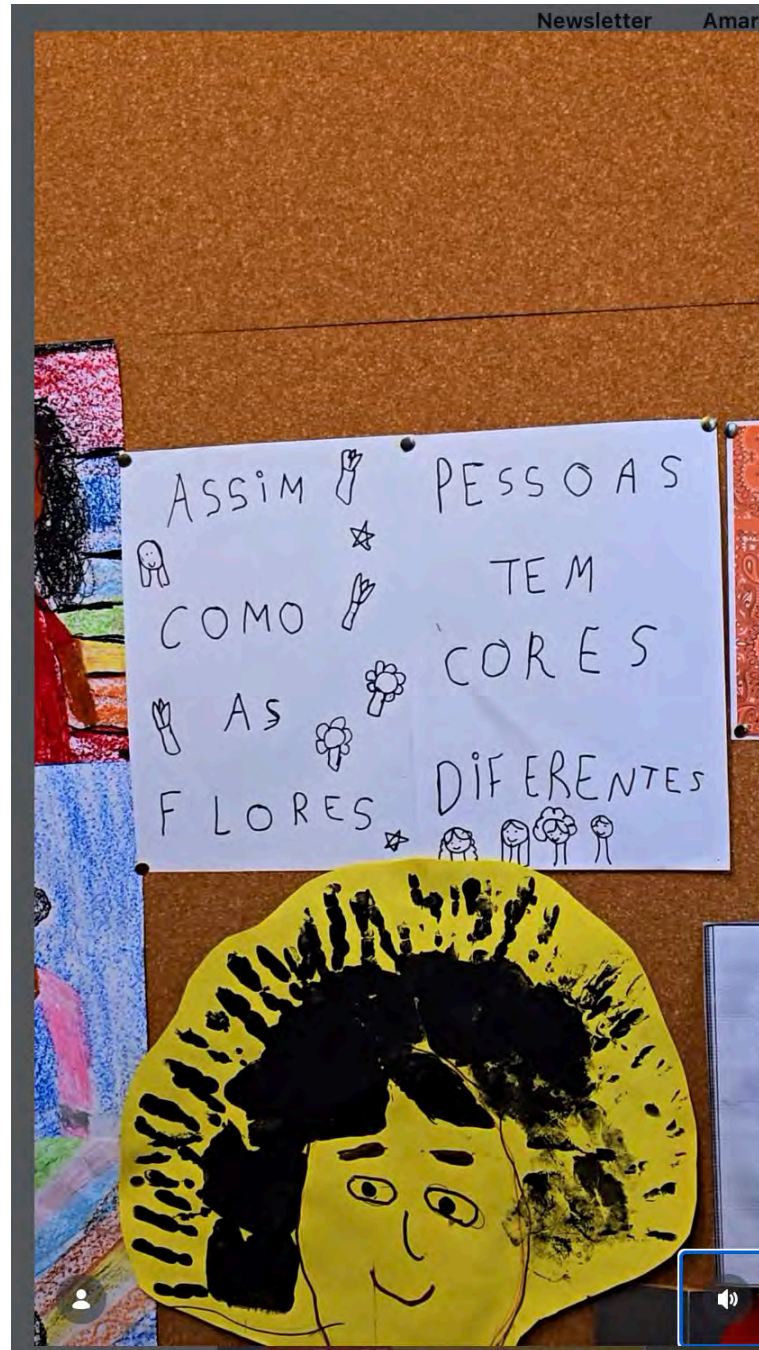 Newsletter Amar
ASSiM
COMO
AS
FLORES
PESSOAS
TEM
CORES
DiFERENTES